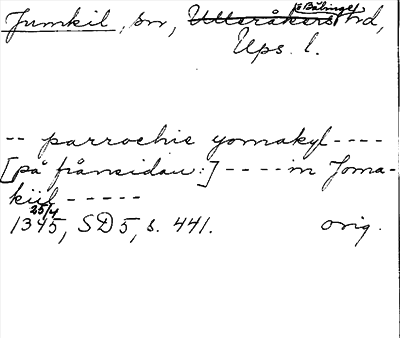 Jumkil, sn, Ulleråkers hd,
i Bälinge
Ups. l.
-- parrochie yomakyl ----
[på frånsidan:] ---- in Joma-
kiil -----
25/4
1345, SD 5, s. 441. orig.